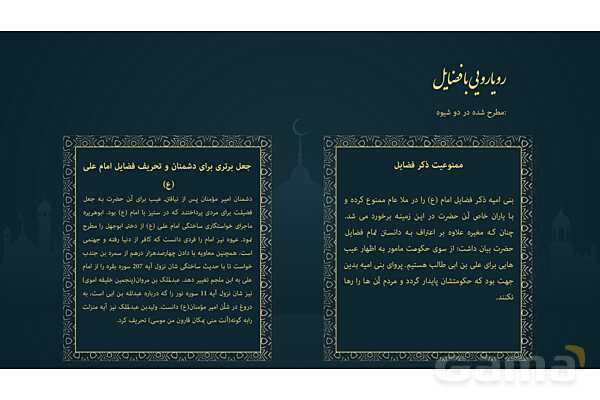 رویارویی با فضایل
مطرح شده در دو شیوه:
ممنوعیت ذکر فضایل
بنی امیه ذکر فضایل امام (ع) را در ملا عام ممنوع کرده و
با یاران خاص آن حضرت در این زمینه برخورد می شد.
چنان که مغیره علاوه بر اعتراف به دانستن تمام فضایل
حضرت بیان داشت: از سوی حکومت مامور به اظهار عیب
هایی برای علی بن ابی طالب هستیم. پروای بنی امیه بدین
جهت بود که حکومتشان پایدار گردد و مردم آن ها را رها
نکنند.
جعل برتری برای دشمنان و تحریف فضایل امام علی
(ع)
دشمنان امیر مؤمنان پس از نیافتن عیب برای آن حضرت به جعل
فضیلت برای مردی پرداختند که در ستیز با امام (ع) بود. ابوهریره
ماجرای خواستگاری ساختگی امام علی (ع) از دختر ابوجهل را مطرح
نمود. عروه نیز امام را فردی دانست که کافر از دنیا رفته و جهنمی
است. همچنین معاویه با دادن چهارصدهزار درهم از سمره بن جندب
خواست تا با حدیث ساختگی شان نزول آیه 207 سوره بقره را از امام
علی به ابن ملجم تغییر دهد. عبدالملک بن مروان(پنجمین خلیفه اموی)
نیز شان نزول آیه 11 سوره نور را که درباره عبدالله بن ابی است، به
دروغ در شأن امیر مؤمنان(ع) دانست. ولیدبن عبدملک نیز آیه منزلت
رابه گونه(أنت منی بمکان قارون من موسی) تحریف کرد.
Gama